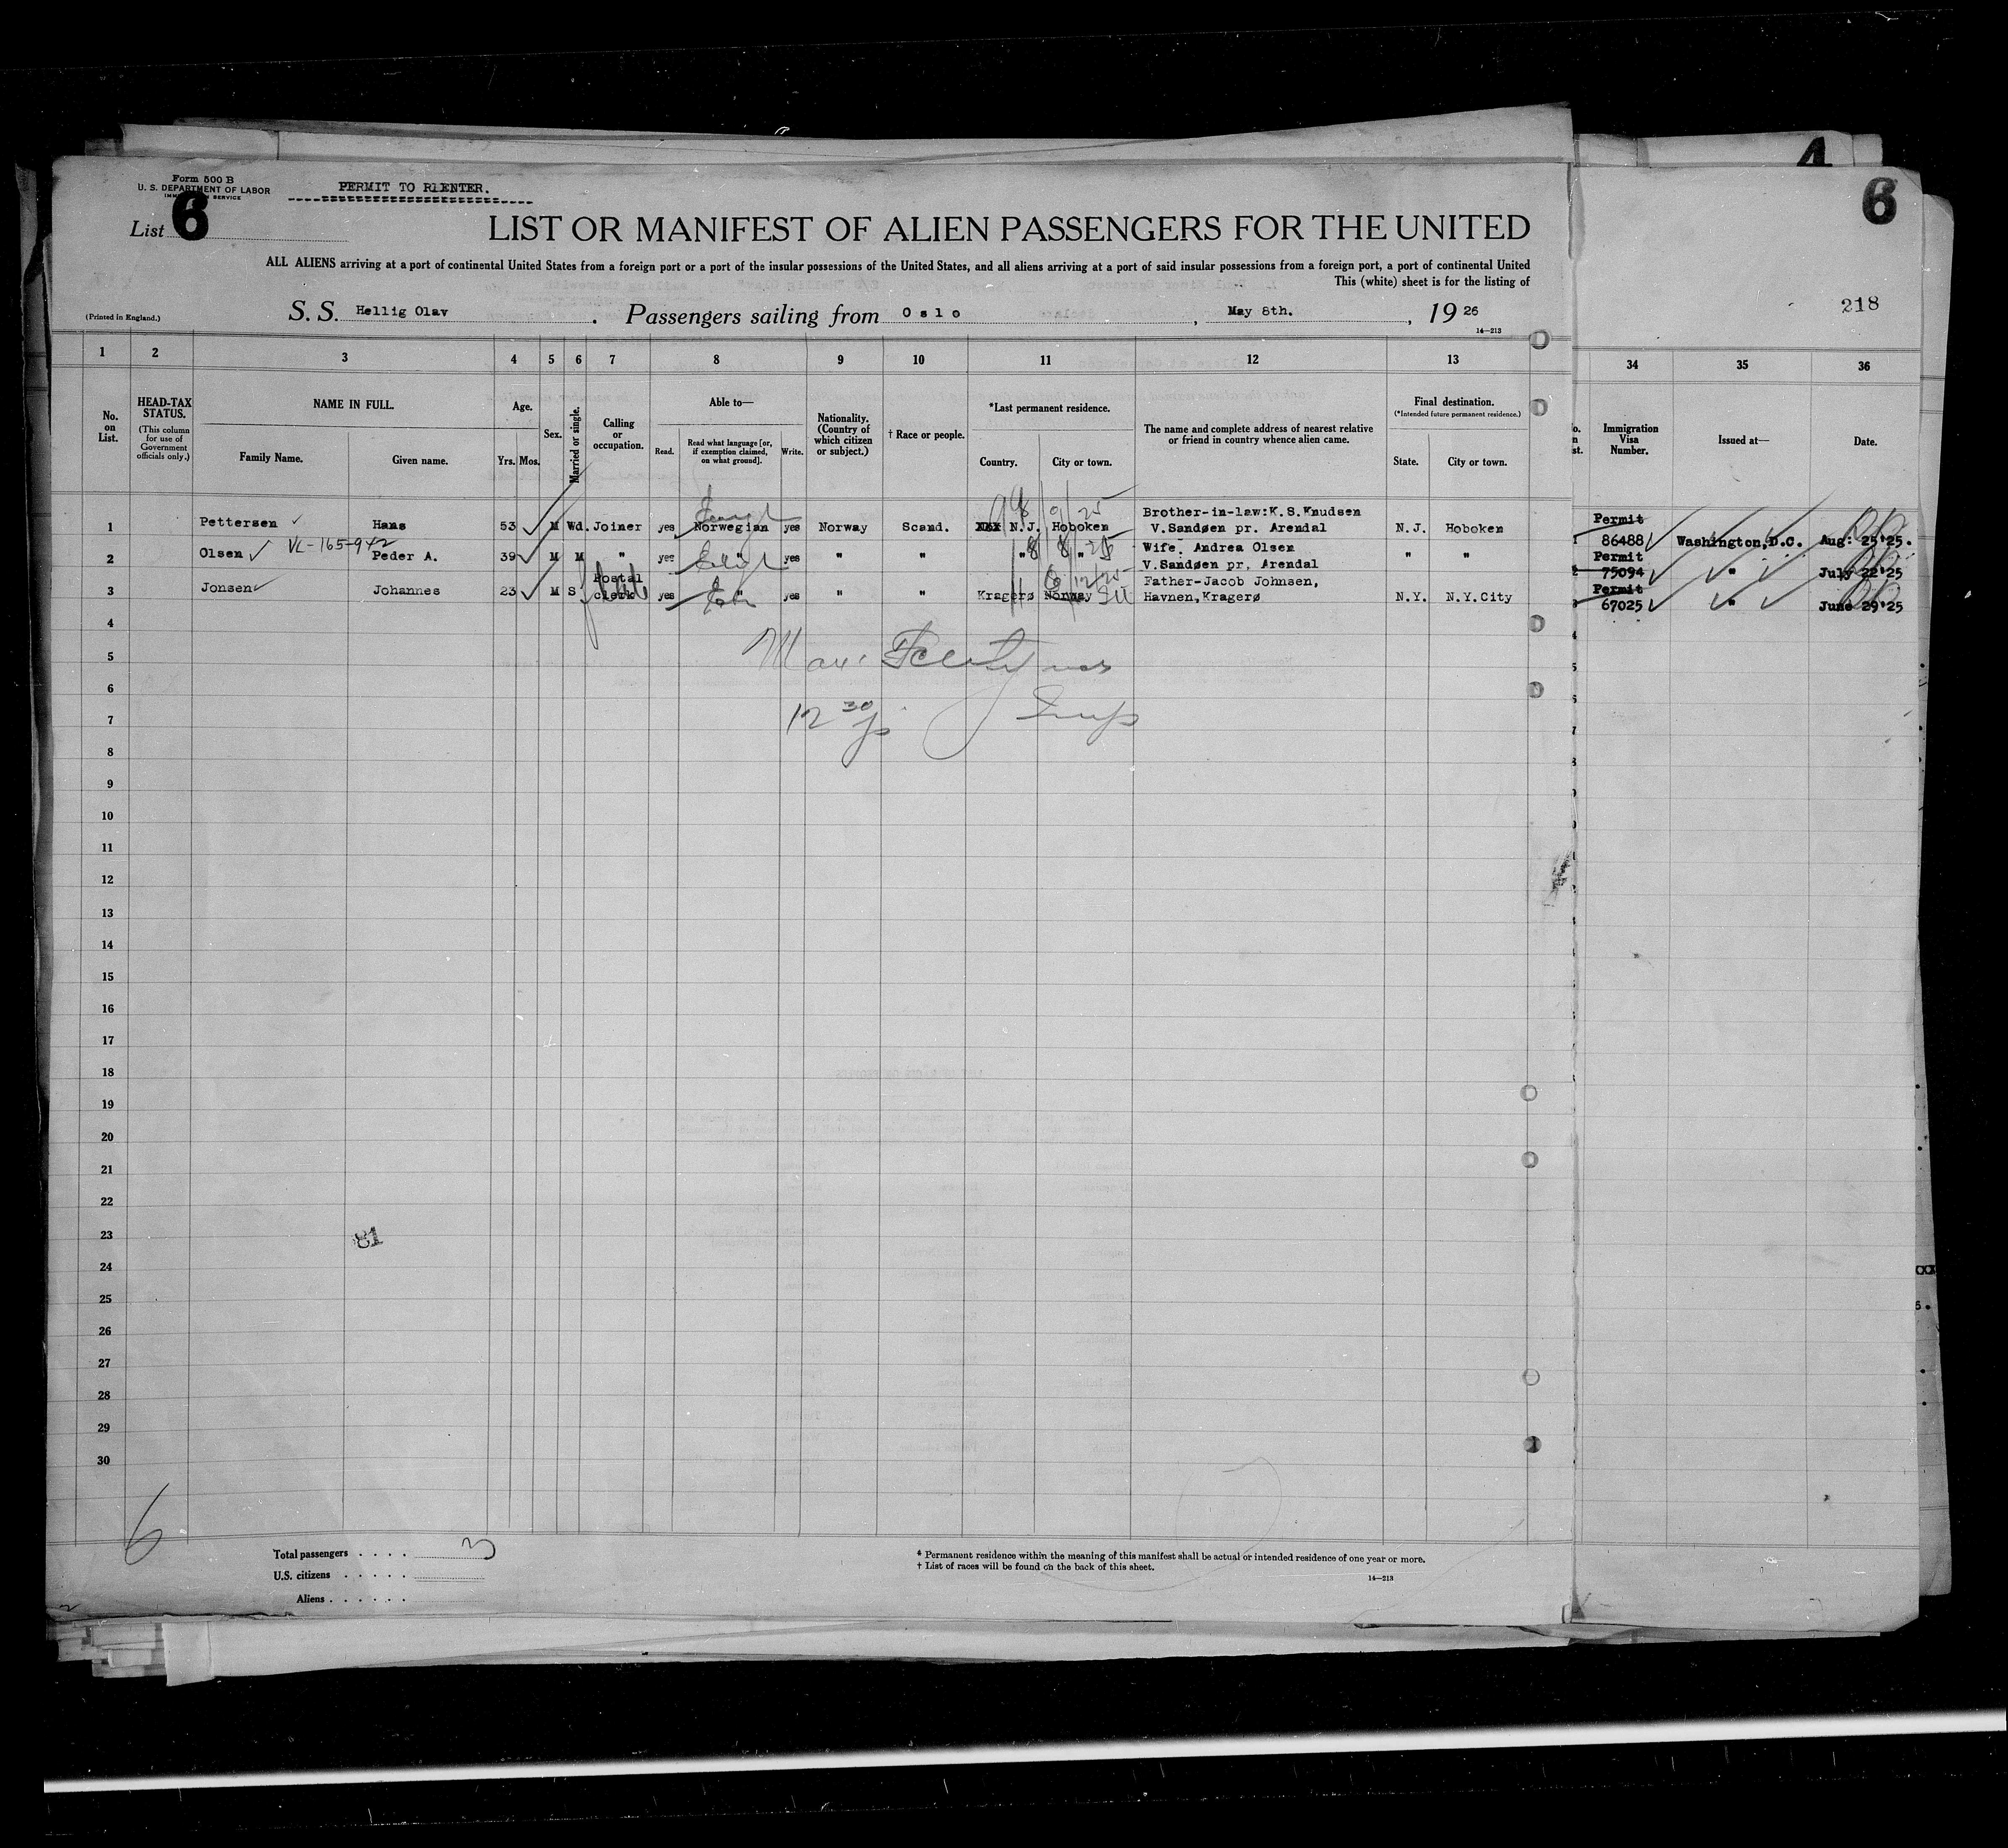 4
Form 500 B
U. S. DEPARTMENT OF LABOR
SERVICE
PERMIT TO REENTER.
List 6
6
LIST OR MANIFEST OF ALIEN PASSENGERS FOR THE UNITED
ALL ALIENS arriving at a port of continental United States from a foreign port or a port of the insular possessions of the United States, and all aliens arriving at a port of said insular possessions from a foreign port, a port of continental United
This (white) sheet is for the listing of
218
(Printed in England.) S. S. Hellig Olav. Passengers sailing from Oslo, May 8th., 19 26
14—213
1 2 3 4 5 6 7 8 9 10 11 12 13 34 35 36
No. on List.
HEAD-TAX STATUS.
(This column for use of Government officials only.)
NAME IN FULL.
Family Name. Given name.
Age.
Yrs. Mos.
Sex.
Married or single.
Calling or occupation.
Able to—
Read. Read what language [or, if exemption claimed, on what ground]. Write.
Nationality. (Country of which citizen or subject.)
† Race or people.
*Last permanent residence.
Country. City or town.
The name and complete address of nearest relative or friend in country whence alien came.
Final destination.
(*Intended future permanent residence.)
State. City or town.
Immigration Visa Number.
Issued at—
Date.
1 Pettersen Hans 53 M Wd. Joiner yes Norwegian yes Norway Scand. N.J. Hoboken Brother-in-law:K.S.Knudsen V.Sandøen pr. Arendal N.J. Hoboken Permit 86488 Washington,D.C. Aug: 25'25.
VL-165-942
2 Olsen Peder A. 39 M M " yes " yes " " " " Wife: Andrea Olsen V.Sandøen pr, Arendal " " Permit 75094 " July 22'25
3 Jonsen Johannes 23 M S Postal clerk yes " yes " " Kragerø Norway Father-Jacob Johnsen, Havnen,Kragerø N.Y. N.Y.City Permit 67025 " June 29'25
4
5
6
7
12 30
8
9
10
11
12
13
14
15
16
17
18
19
20
21
22
23
81
24
25
26
27
28
29
30
6
Total passengers . . . . 3
U.S. citizens . . . . .
Aliens . . . . . .
* Permanent residence within the meaning of this manifest shall be actual or intended residence of one year or more.
† List of races will be found on the back of this sheet.
14—213